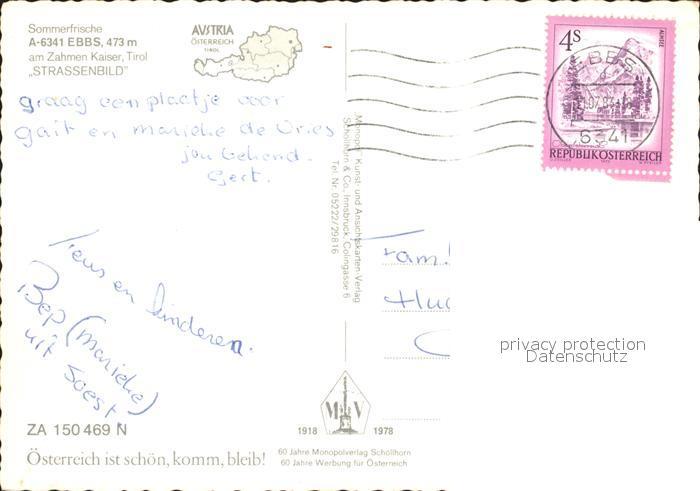 Sommerfrische
A-6341 EBBS, 473 m
am Zahmen Kaiser, Tirol
„STRASSENBILD"
AUSTRIA
ÖSTERREICH
TIROL
graag een plaatje voor
gait en marieke de Vries
jou bekend.
Gert.
Teus en kinderen.
Bep (marieke)
uit Soest.
ZA 150 469 N
Österreich ist schön, komm, bleib!
Monopol Kunst- und Ansichtskarten-Verlag
Schöllhorn & Co., Innsbruck, Colingasse 6
Tel. Nr. 05222/29816
M V
1918 1978
60 Jahre Monopolverlag Schöllhorn
60 Jahre Werbung für Österreich
4 S
ALMSEE
EBBS
6341
REPUBLIK ÖSTERREICH
Fam.
privacy protection
Datenschutz